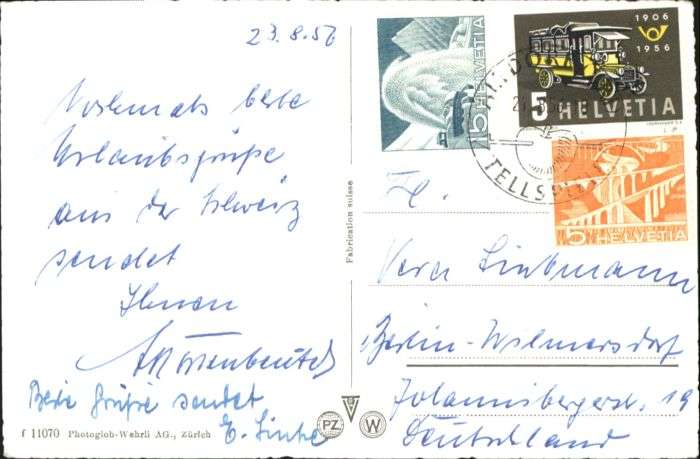 23.8.56
Nochmals beste
Urlaubsgrüße
aus der Schweiz
sendet
Ihnen
Beste Grüße sendet
E. Linke
f 11070 Photoglob-Wehrli AG., Zürich
PZ W
Fabrication suisse
15 HELVETIA
1906
1956
5 HELVETIA
ALTDORF
TELLSPIEL
5 HELVETIA
Frl.
Vera Liebmann
Berlin-Wilmersdorf
Johannisbergerstr. 19
Deutschland